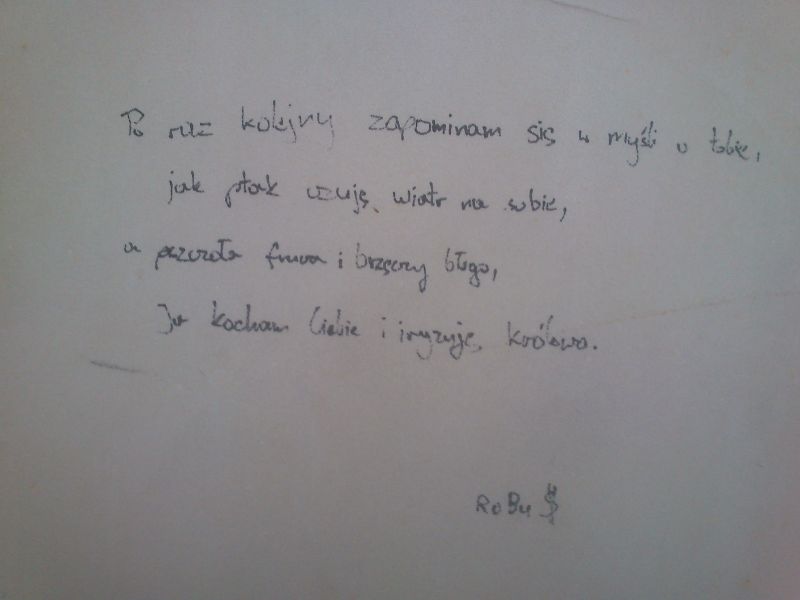 Po raz kolejny zapominam się w myśli o tobie,
jak ptak czuję wiatr na sobie,
a pszczoła fruwa i brzęczy błogo,
Ja kocham Ciebie i iryzuję, królowo.
RoBu